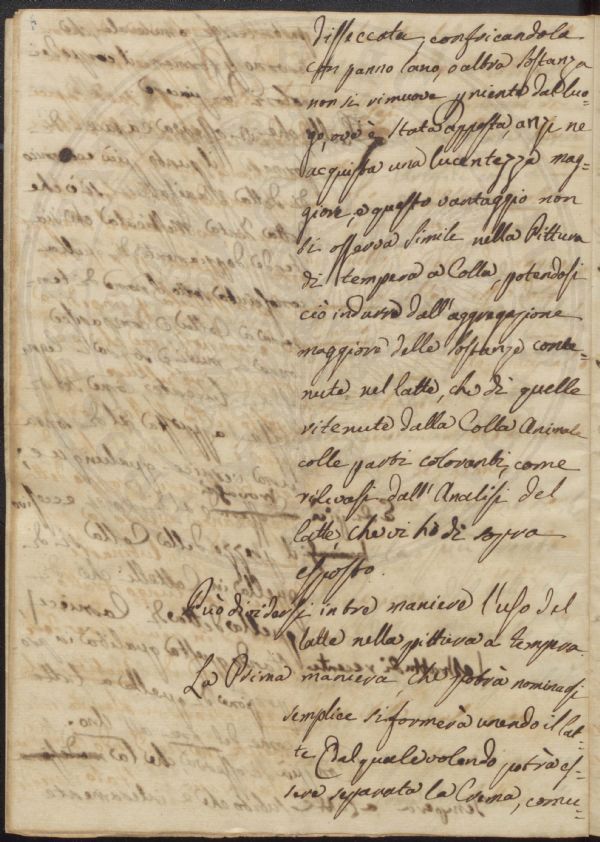 disseccata, confricandola
con panno lano, o altra sostanza
non si rimuove punto dal luo-
go, ove è stata apposta, anzi ne
acquista una lucentezza mag-
giore, e questo vantaggio non
si osserva simile nella Pittura
di tempera a Colla, potendosi
ciò indurre dall'aggregazione
maggiore delle sostanze conte-
nute nel latte, che di quelle
ritenute dalla Colla Animale
colle parti coloranti, come
rilevasi dall'Analisi del
latte, che vi hò di sopra
esposto.
Può dividersi in tre maniere l'uso del
latte nella pittura a tempera.
La Prima maniera, che potrà nominarsi
semplice si formerà unendo il lat-
te (dal quale volendo potrà es-
sere separata la Crema, comu-